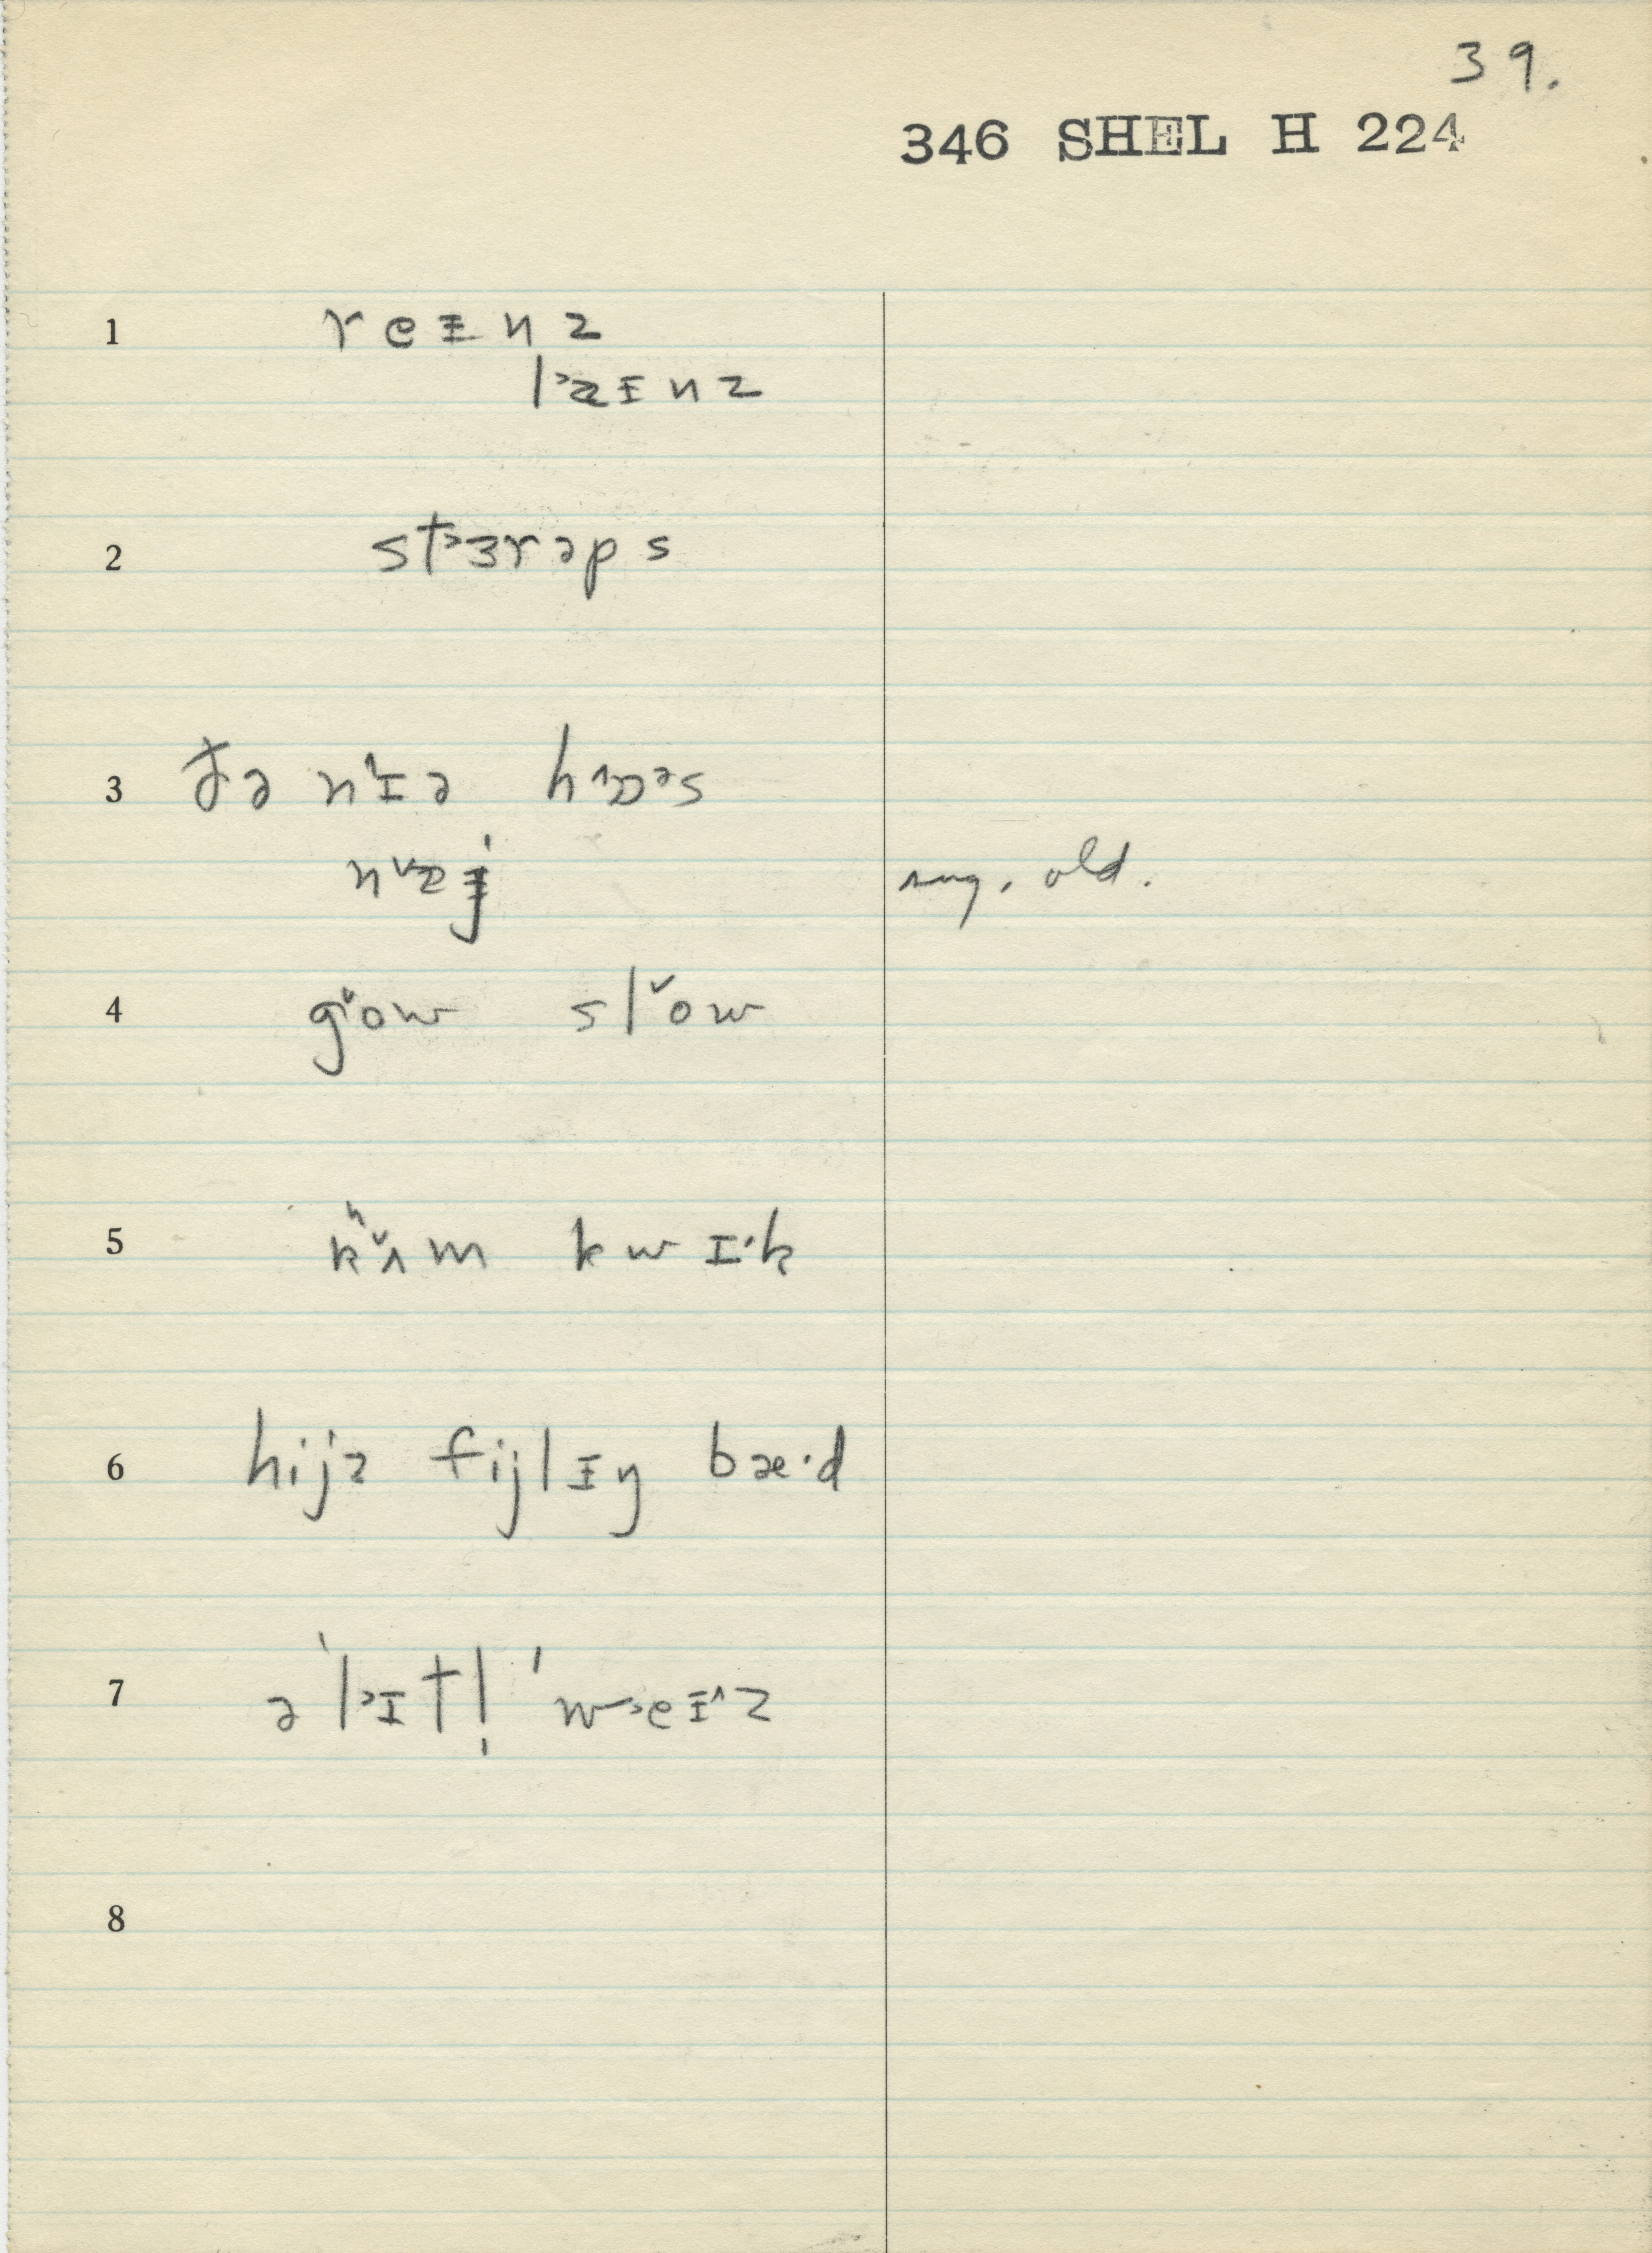 39.
346 SHEL H 224
1 reᵻnz
l˃æᵻnz
2 st˃ɜrəps
3 ðə n˄ɪə h˄ɒ˃s
4 g˅ow sl˅ow
5 kʰ˅ʌm kwɪ·k
6 hijz fijlᵻŋ bæ·d
7 ə ˈl˃ɪtl̩ ˈw˃eᵻ˄z
8